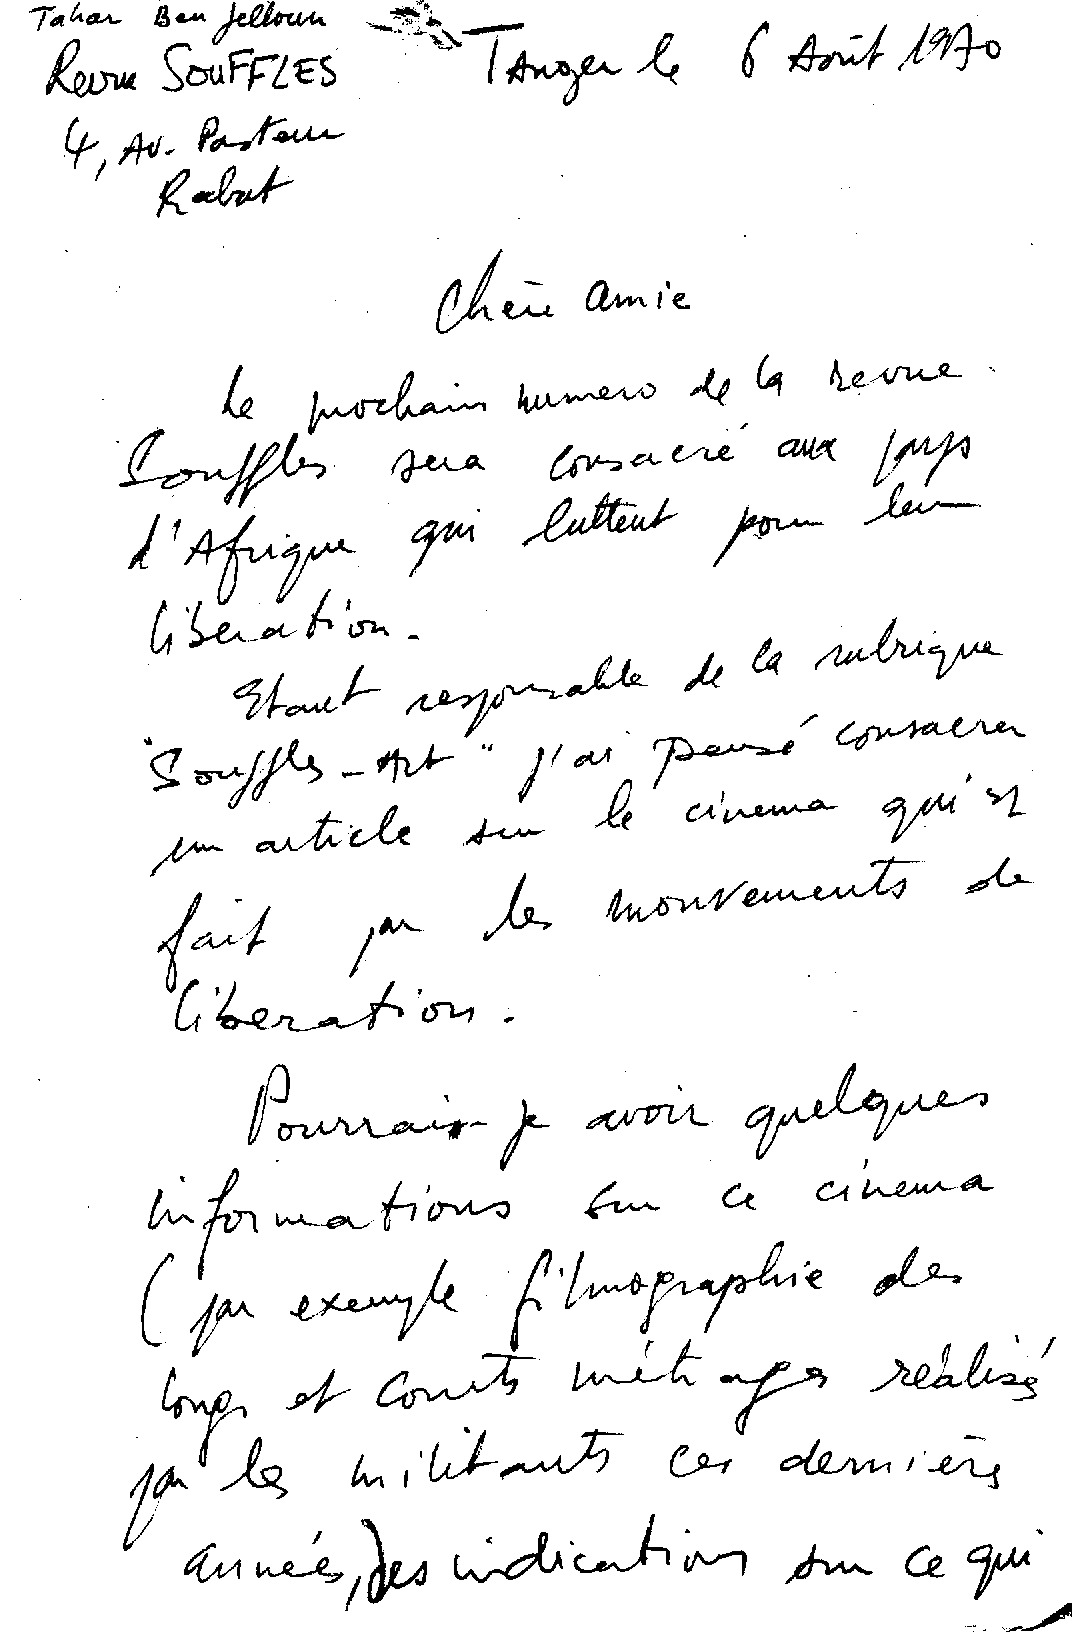 Tahar Ben Jelloun
Revue SOUFFLES
4, Av. Pasteur
Rabat
Tanger le 6 Août 1970
Chère amie
Le prochain numero de la revue
Souffles sera consacré aux pays
d'Afrique qui luttent pour leur
liberation.
Etant responsable de la rubrique
"Souffles-Art" j'ai pensé consacrer
un article sur le cinema qui est
fait par les mouvements de
liberation.
Pourrais-je avoir quelques
informations sur ce cinema
(par exemple filmographie des
longs et courts métrages réalisé
par les militants ces dernières
années, des indications sur ce qui